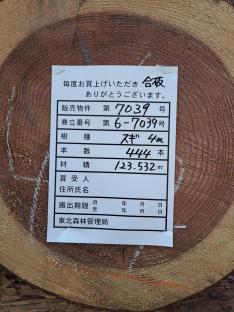 毎度お買上げいただき 合板
ありがとうございます。
販売物件 第7039号
巻立番号 第6-7039号
樹種 スギ 4m
本数 444本
材積 123.532㎥
買受人
住所氏名
搬出期限 自 年 月 日
至 年 月 日
東北森林管理局